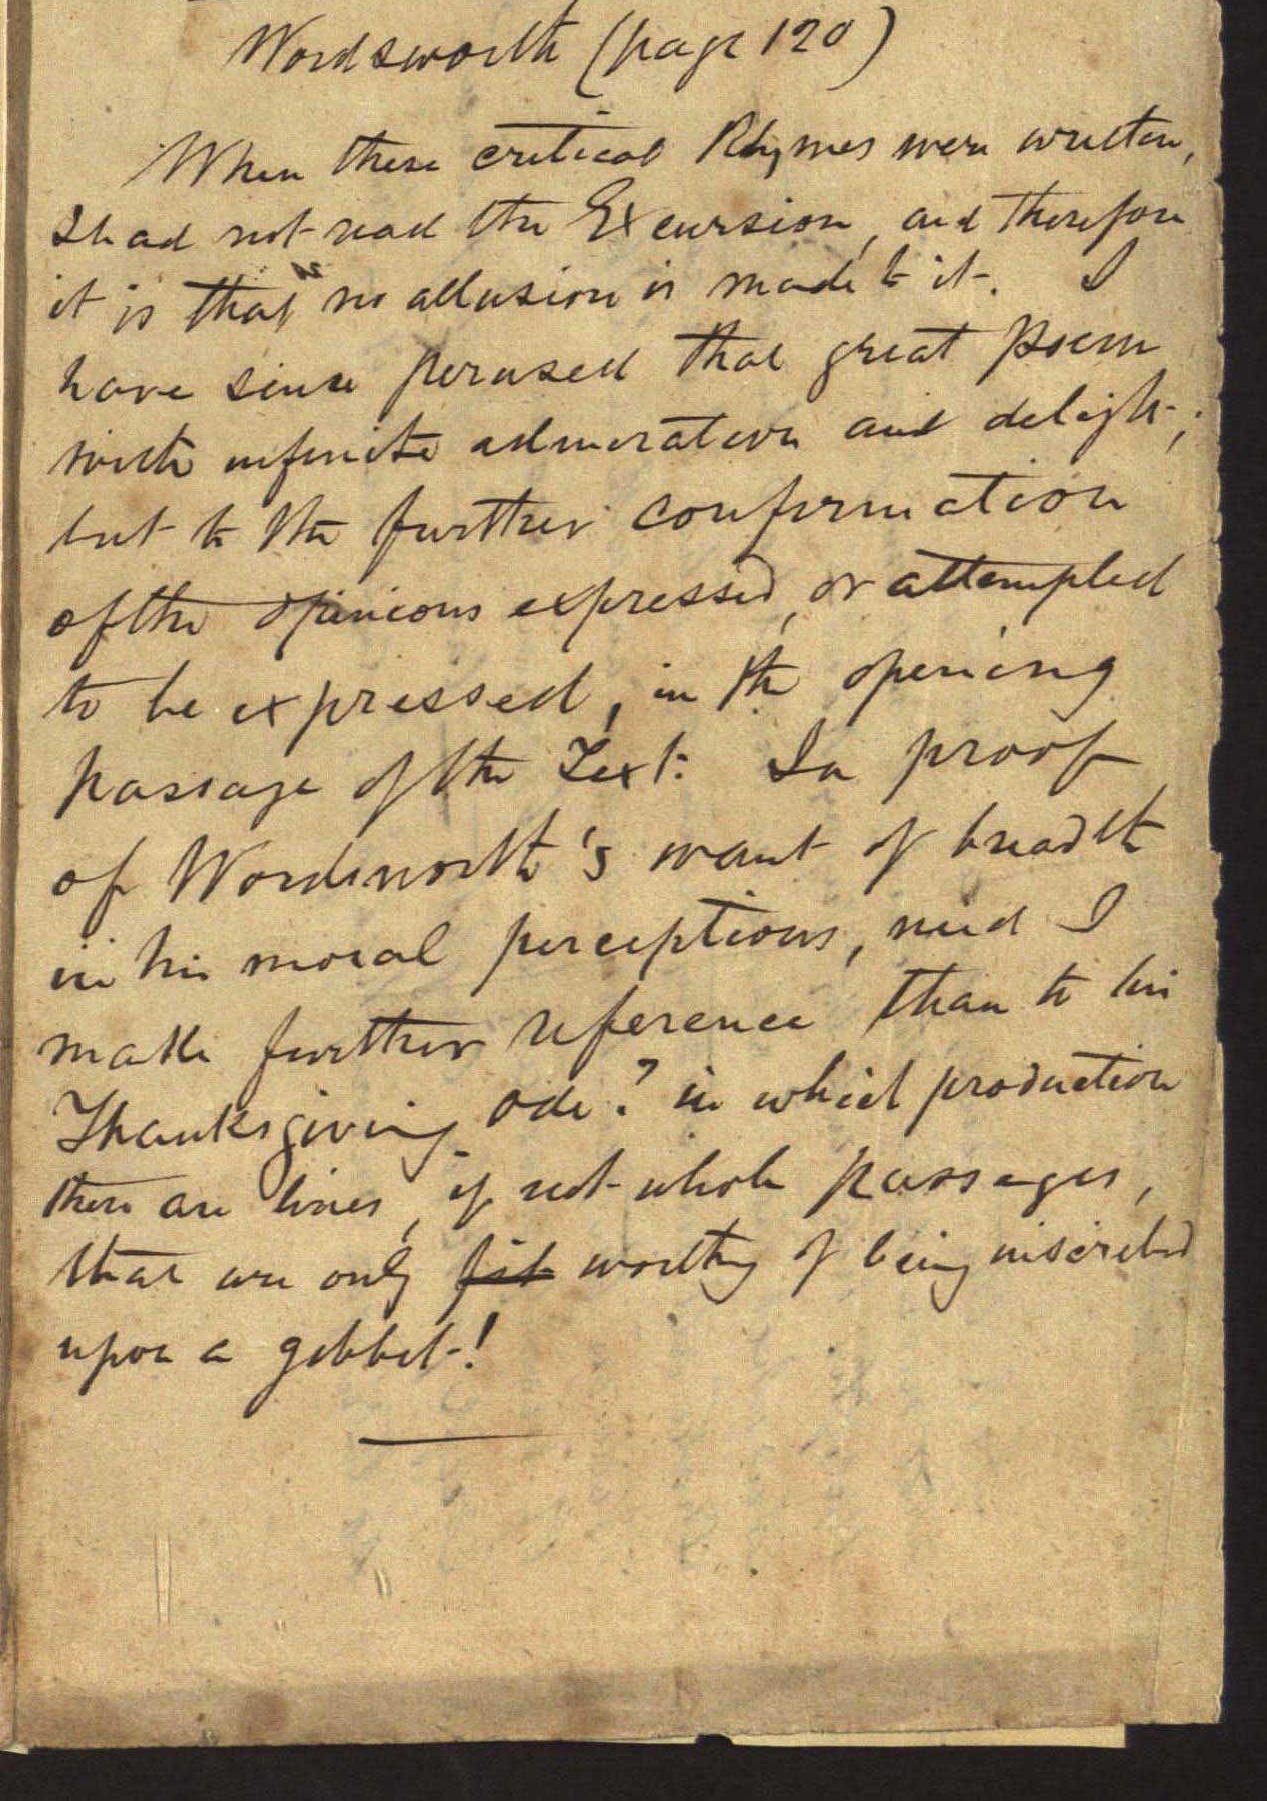 Wordsworth (page 120)
When these critical Rhymes were written,
I had not read the Excursion, and therefore
it is that no allusion is made to it. I
have since perused that great Poem
with infinite admiration and delight;
but to the further confirmation
of the opinions expressed, or attempted
to be expressed, in the opening
passage of the Text. In proof
of Wordsworth's want of breadth
in his moral perceptions, need I
make further reference than to his
Thanksgiving Ode? in which production
there are lines, if not whole passages,
that are only fit worthy of being inscribed
upon a gibbet!